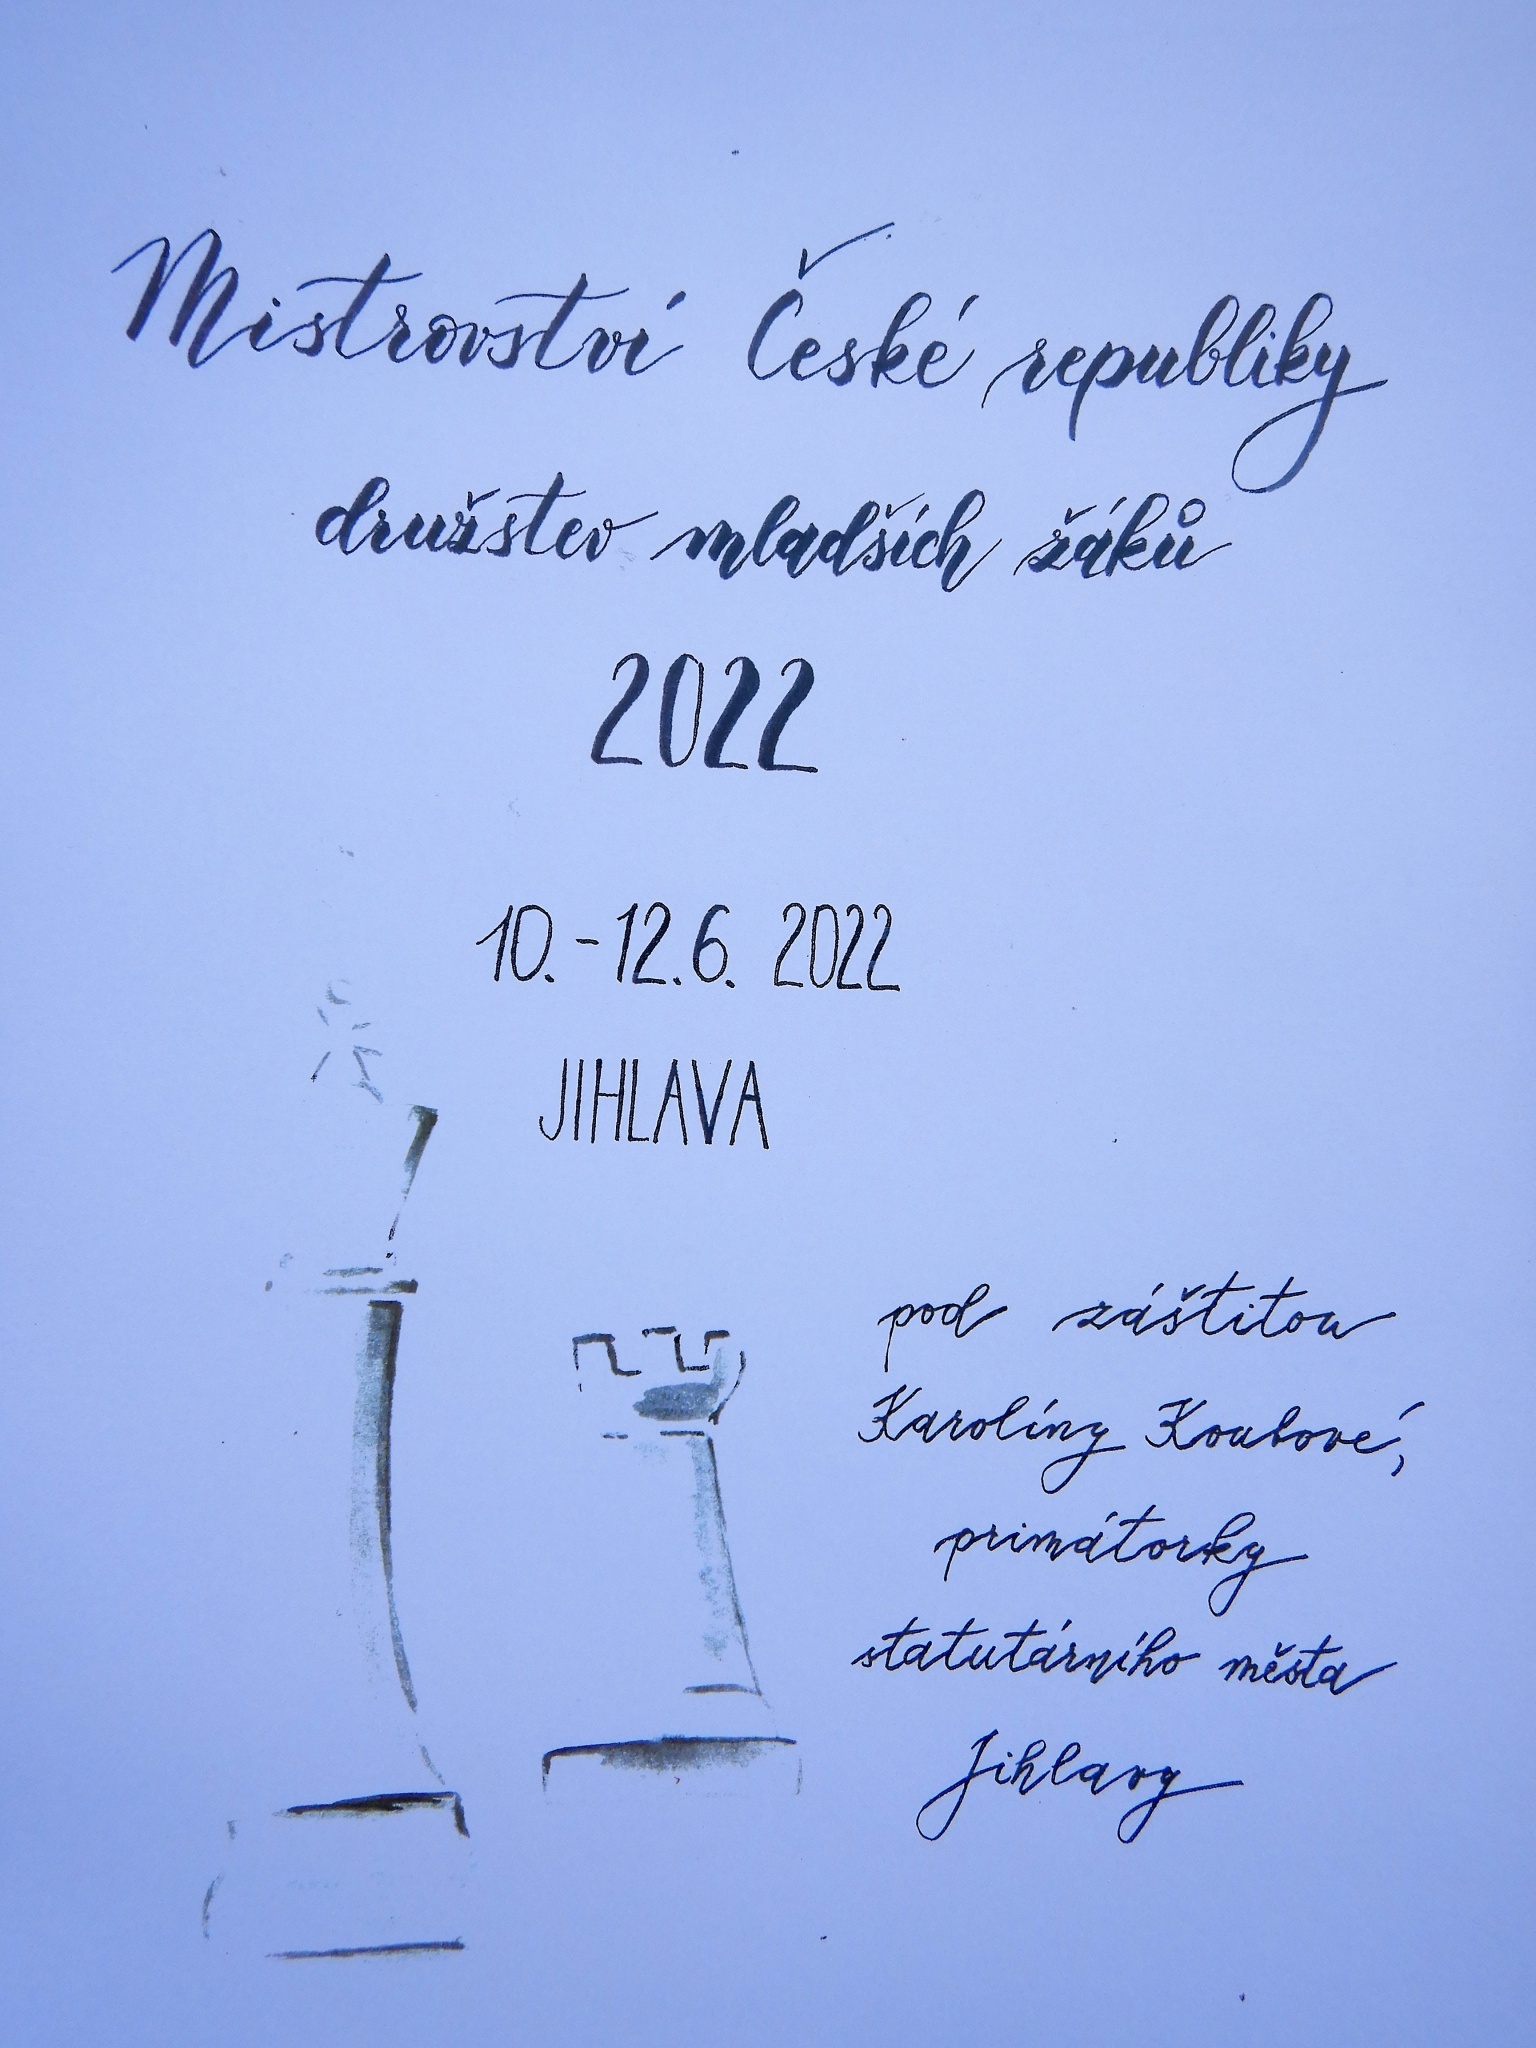 Mistrovství České republiky
družstev mladších žáků
2022
10.-12.6. 2022
JIHLAVA
pod záštitou
Karolíny Koubové,
primátorky
statutárního města
Jihlavy